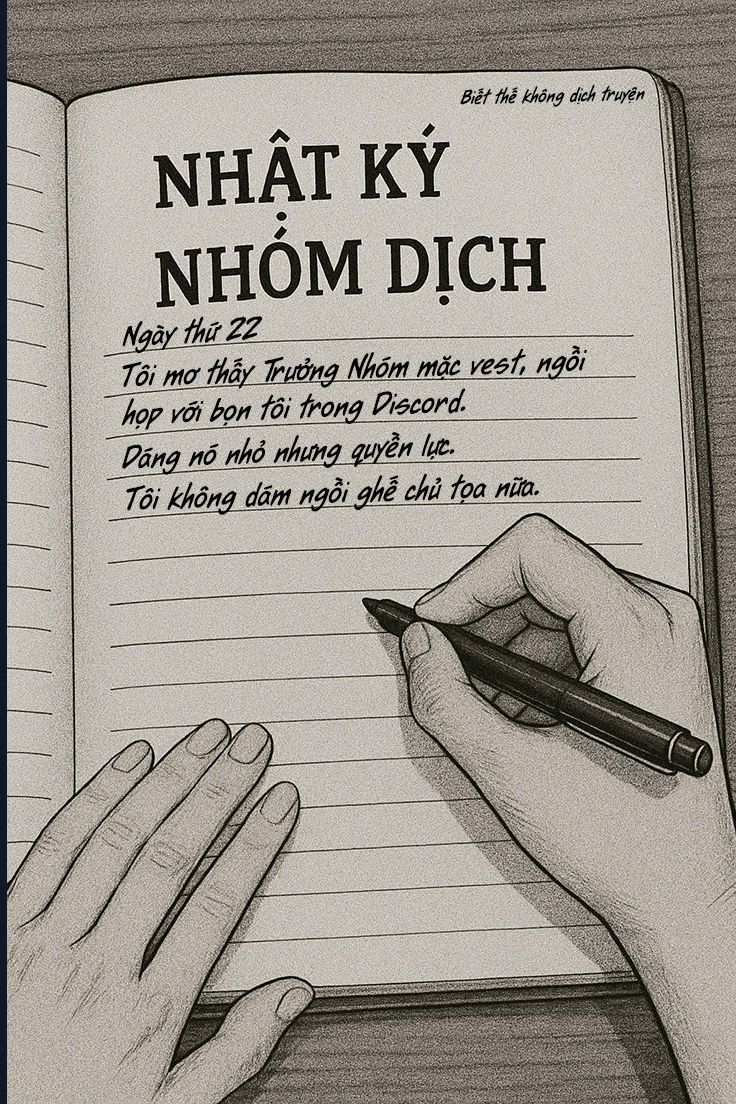 Biết thế không dịch truyện
NHẬT KÝ
NHÓM DỊCH
Ngày thứ 22
Tôi mơ thấy Trưởng Nhóm mặc vest, ngồi
họp với bọn tôi trong Discord.
Dáng nó nhỏ nhưng quyền lực.
Tôi không dám ngồi ghế chủ tọa nữa.